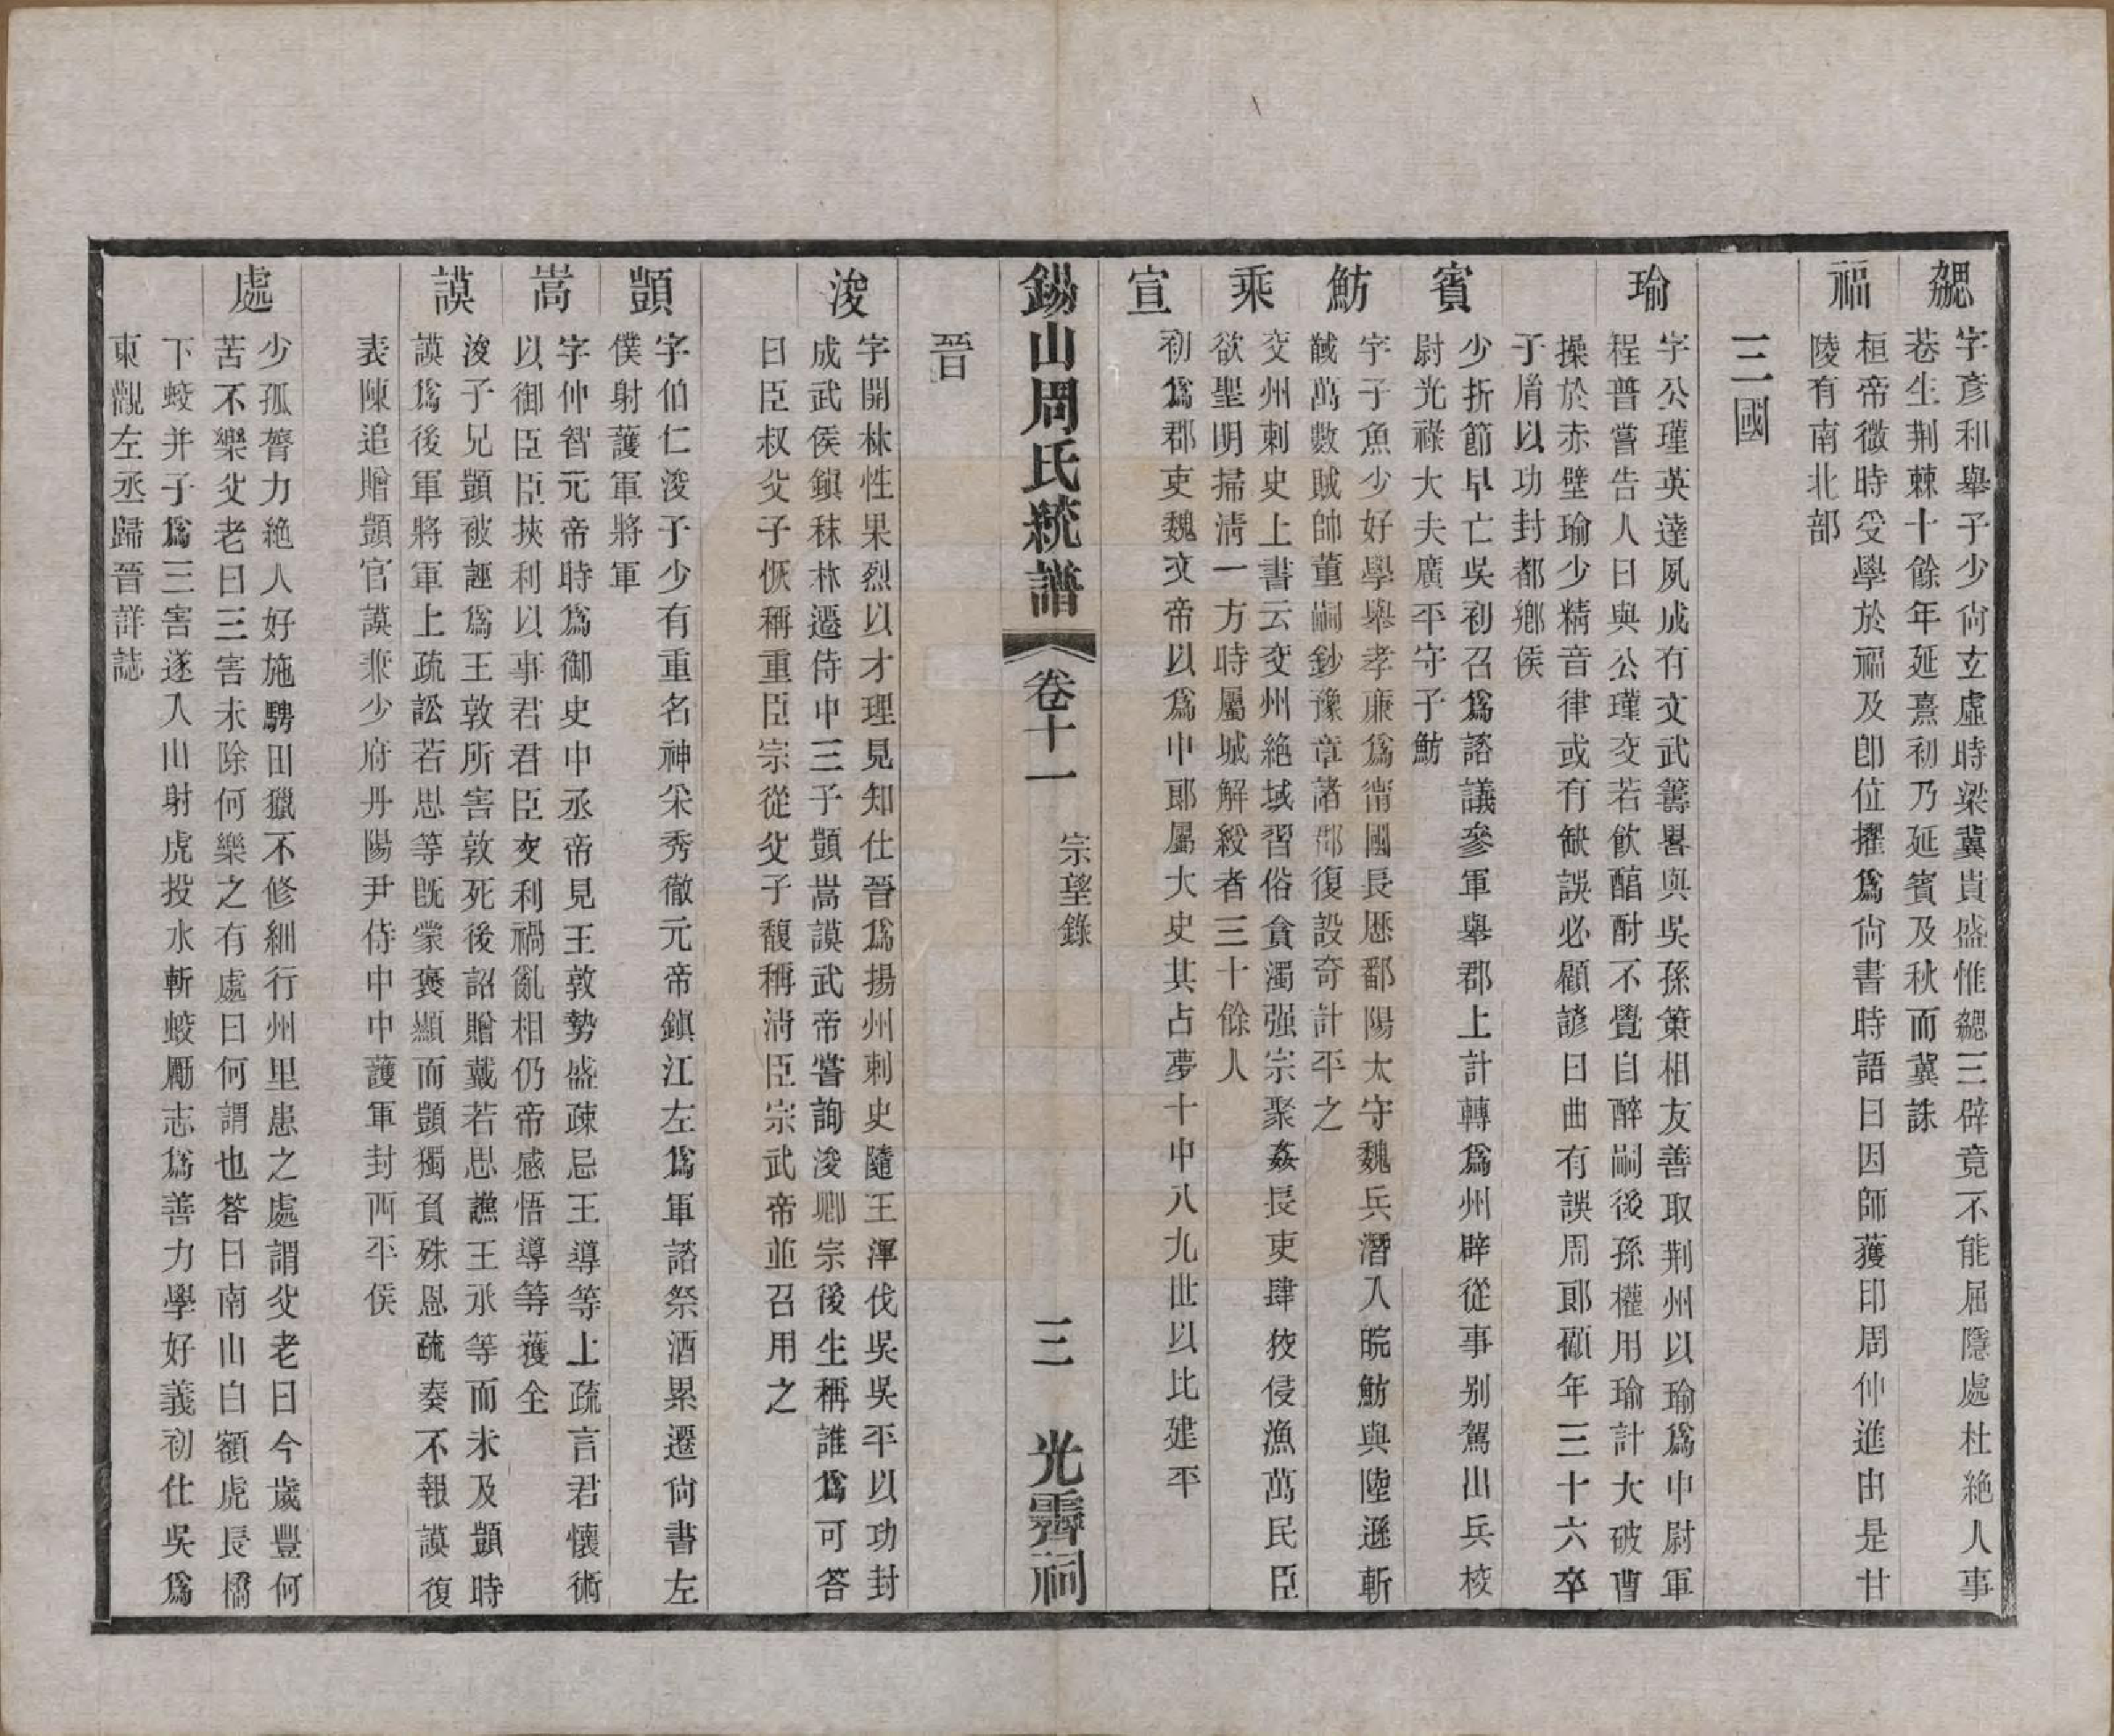 勰
字彥和舉子少尙玄虛時梁冀貴盛惟勰三辟竟不能屈隱處杜絶人事
巷生荆棘十餘年延熹初乃延賓及秋而冀誅
福
桓帝微時受學於福及卽位擢爲尙書時語曰因師獲印周仲進由是甘
陵有南北部
三國
瑜
字公瑾英達夙成有文武籌畧與吳孫策相友善取荆州以瑜爲中尉軍
程普嘗告人曰與公瑾交若飮醕酎不覺自醉嗣後孫權用瑜計大破曹
操於赤壁瑜少精音律或有缺誤必顧諺曰曲有誤周郎顧年三十六卒
子胤以功封都鄕侯
賓
少折節早亡吳初召爲諮議參軍舉郡上計轉爲州辟從事别駕出兵校
尉光祿大夫廣平守子魴
魴
字子魚少好學舉孝廉爲甯國長歷鄱陽太守魏兵潛入皖魴與陸遜斬
馘萬數賊帥董嗣鈔豫章諸郡復設奇計平之
乘
交州刺史上書云交州絶域習俗貪濁强宗聚姦長吏肆狡侵漁萬民臣
欲聖明掃淸一方時屬城解綬者三十餘人
宣
初爲郡吏魏文帝以爲中郎屬大史其占夢十中八九世以比建平
錫山周氏統譜
卷十一
宗望錄
三
光霽祠
晉
浚
字開林性果烈以才理見知仕晉爲揚州刺史隨王渾伐吳吳平以功封
成武侯鎭秣林遷侍中三子顗嵩謨武帝嘗詢浚卿宗後生稱誰爲可答
曰臣叔父子恢稱重臣宗從父子馥稱淸臣宗武帝並召用之
顗
字伯仁浚子少有重名神采秀徹元帝鎭江左爲軍諮祭酒累遷尙書左
僕射護軍將軍
嵩
字仲智元帝時爲御史中丞帝見王敦勢盛疎忌王導等上疏言君懷術
以御臣臣挾利以事君君臣交利禍亂相仍帝感悟導等獲全
謨
浚子兄顗被誣爲王敦所害敦死後詔贈戴若思譙王氶等而未及顗時
謨爲後軍將軍上疏訟若思等旣蒙褒顯而顗獨負殊恩疏奏不報謨復
表陳追贈顗官謨兼少府丹陽尹侍中中護軍封西平侯
處
少孤膂力絶人好施騁田獵不修細行州里患之處謂父老曰今歲豐何
苦不樂父老曰三害未除何樂之有處曰何謂也答曰南山白額虎長橋
下蛟并子爲三害遂入山射虎投水斬蛟勵志爲善力學好義初仕吳爲
東觀左丞歸晉詳誌